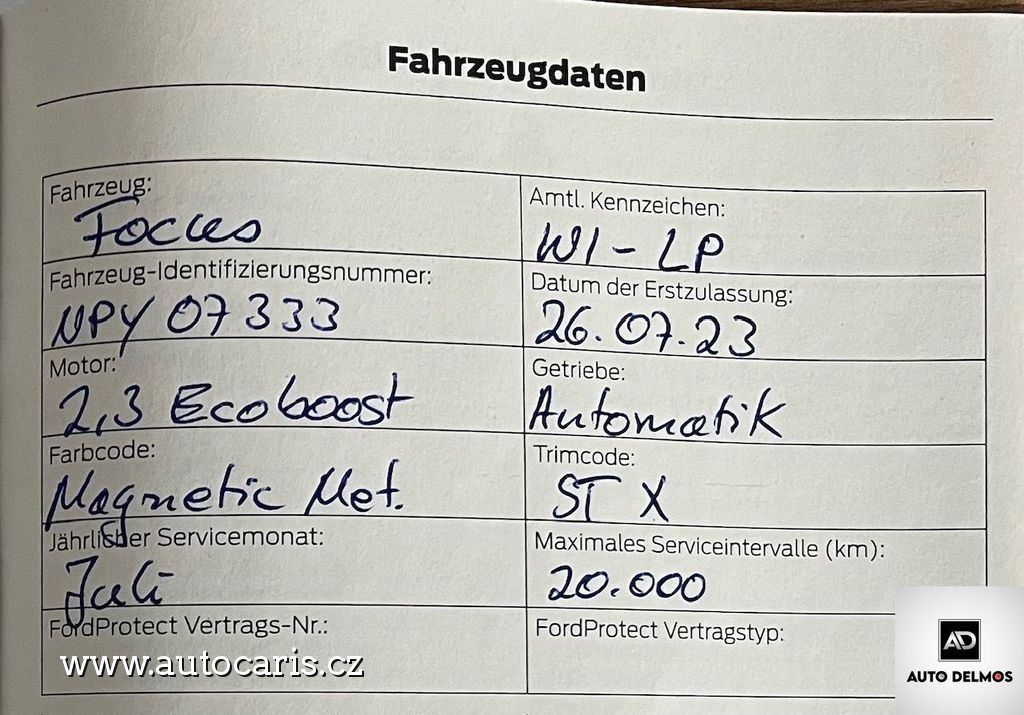 Fahrzeugdaten
Fahrzeug:
Focus
Amtl. Kennzeichen:
WI - LP
Fahrzeug-Identifizierungsnummer:
NPY 07333
Datum der Erstzulassung:
26.07.23
Motor:
2,3 Ecoboost
Getriebe:
Automatik
Farbcode:
Magnetic Met.
Trimcode:
ST X
Jährlicher Servicemonat:
Juli
Maximales Serviceintervalle (km):
20.000
FordProtect Vertrags-Nr.:
FordProtect Vertragstyp:
www.autocaris.cz
AD
AUTO DELMOS